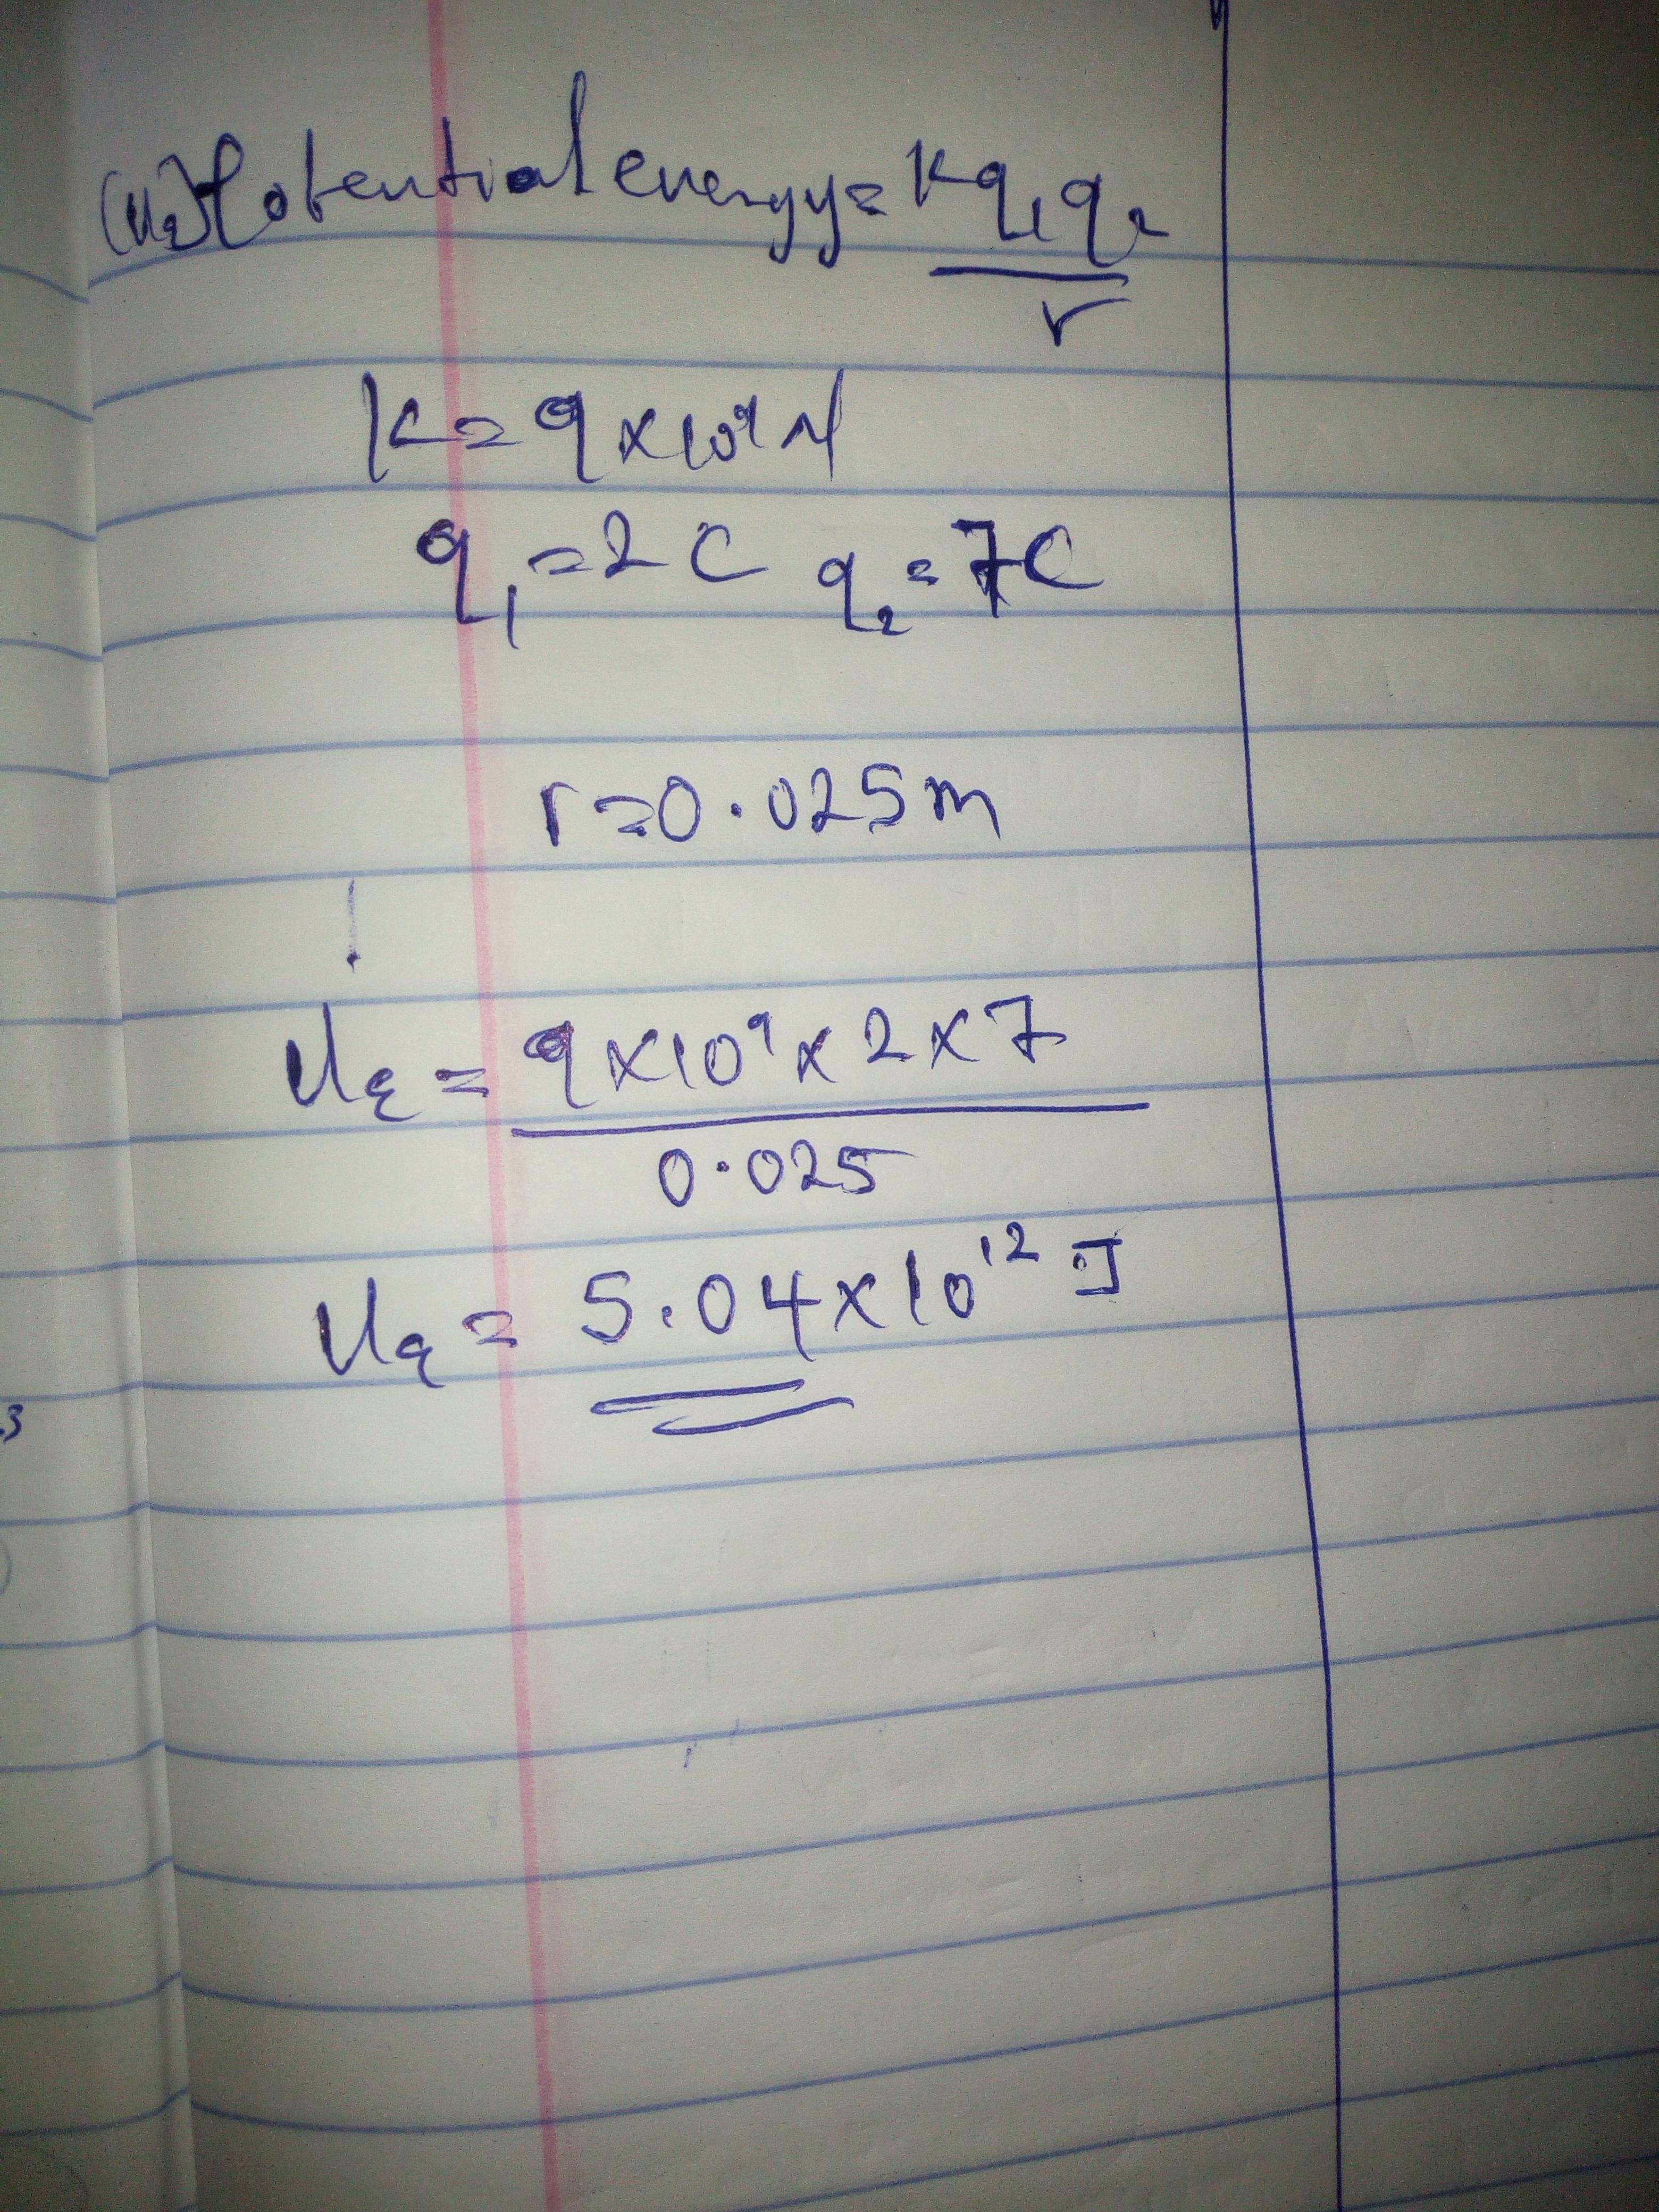 (U₂) Potential energy = Kq₁q₂
r
K = 9 × 10⁹ N
q₁ = 2 C q₂ = 7C
r = 0.025m
= 9 × 10⁹ × 2 × 7
0.025
= 5.04 × 10¹² J
.3